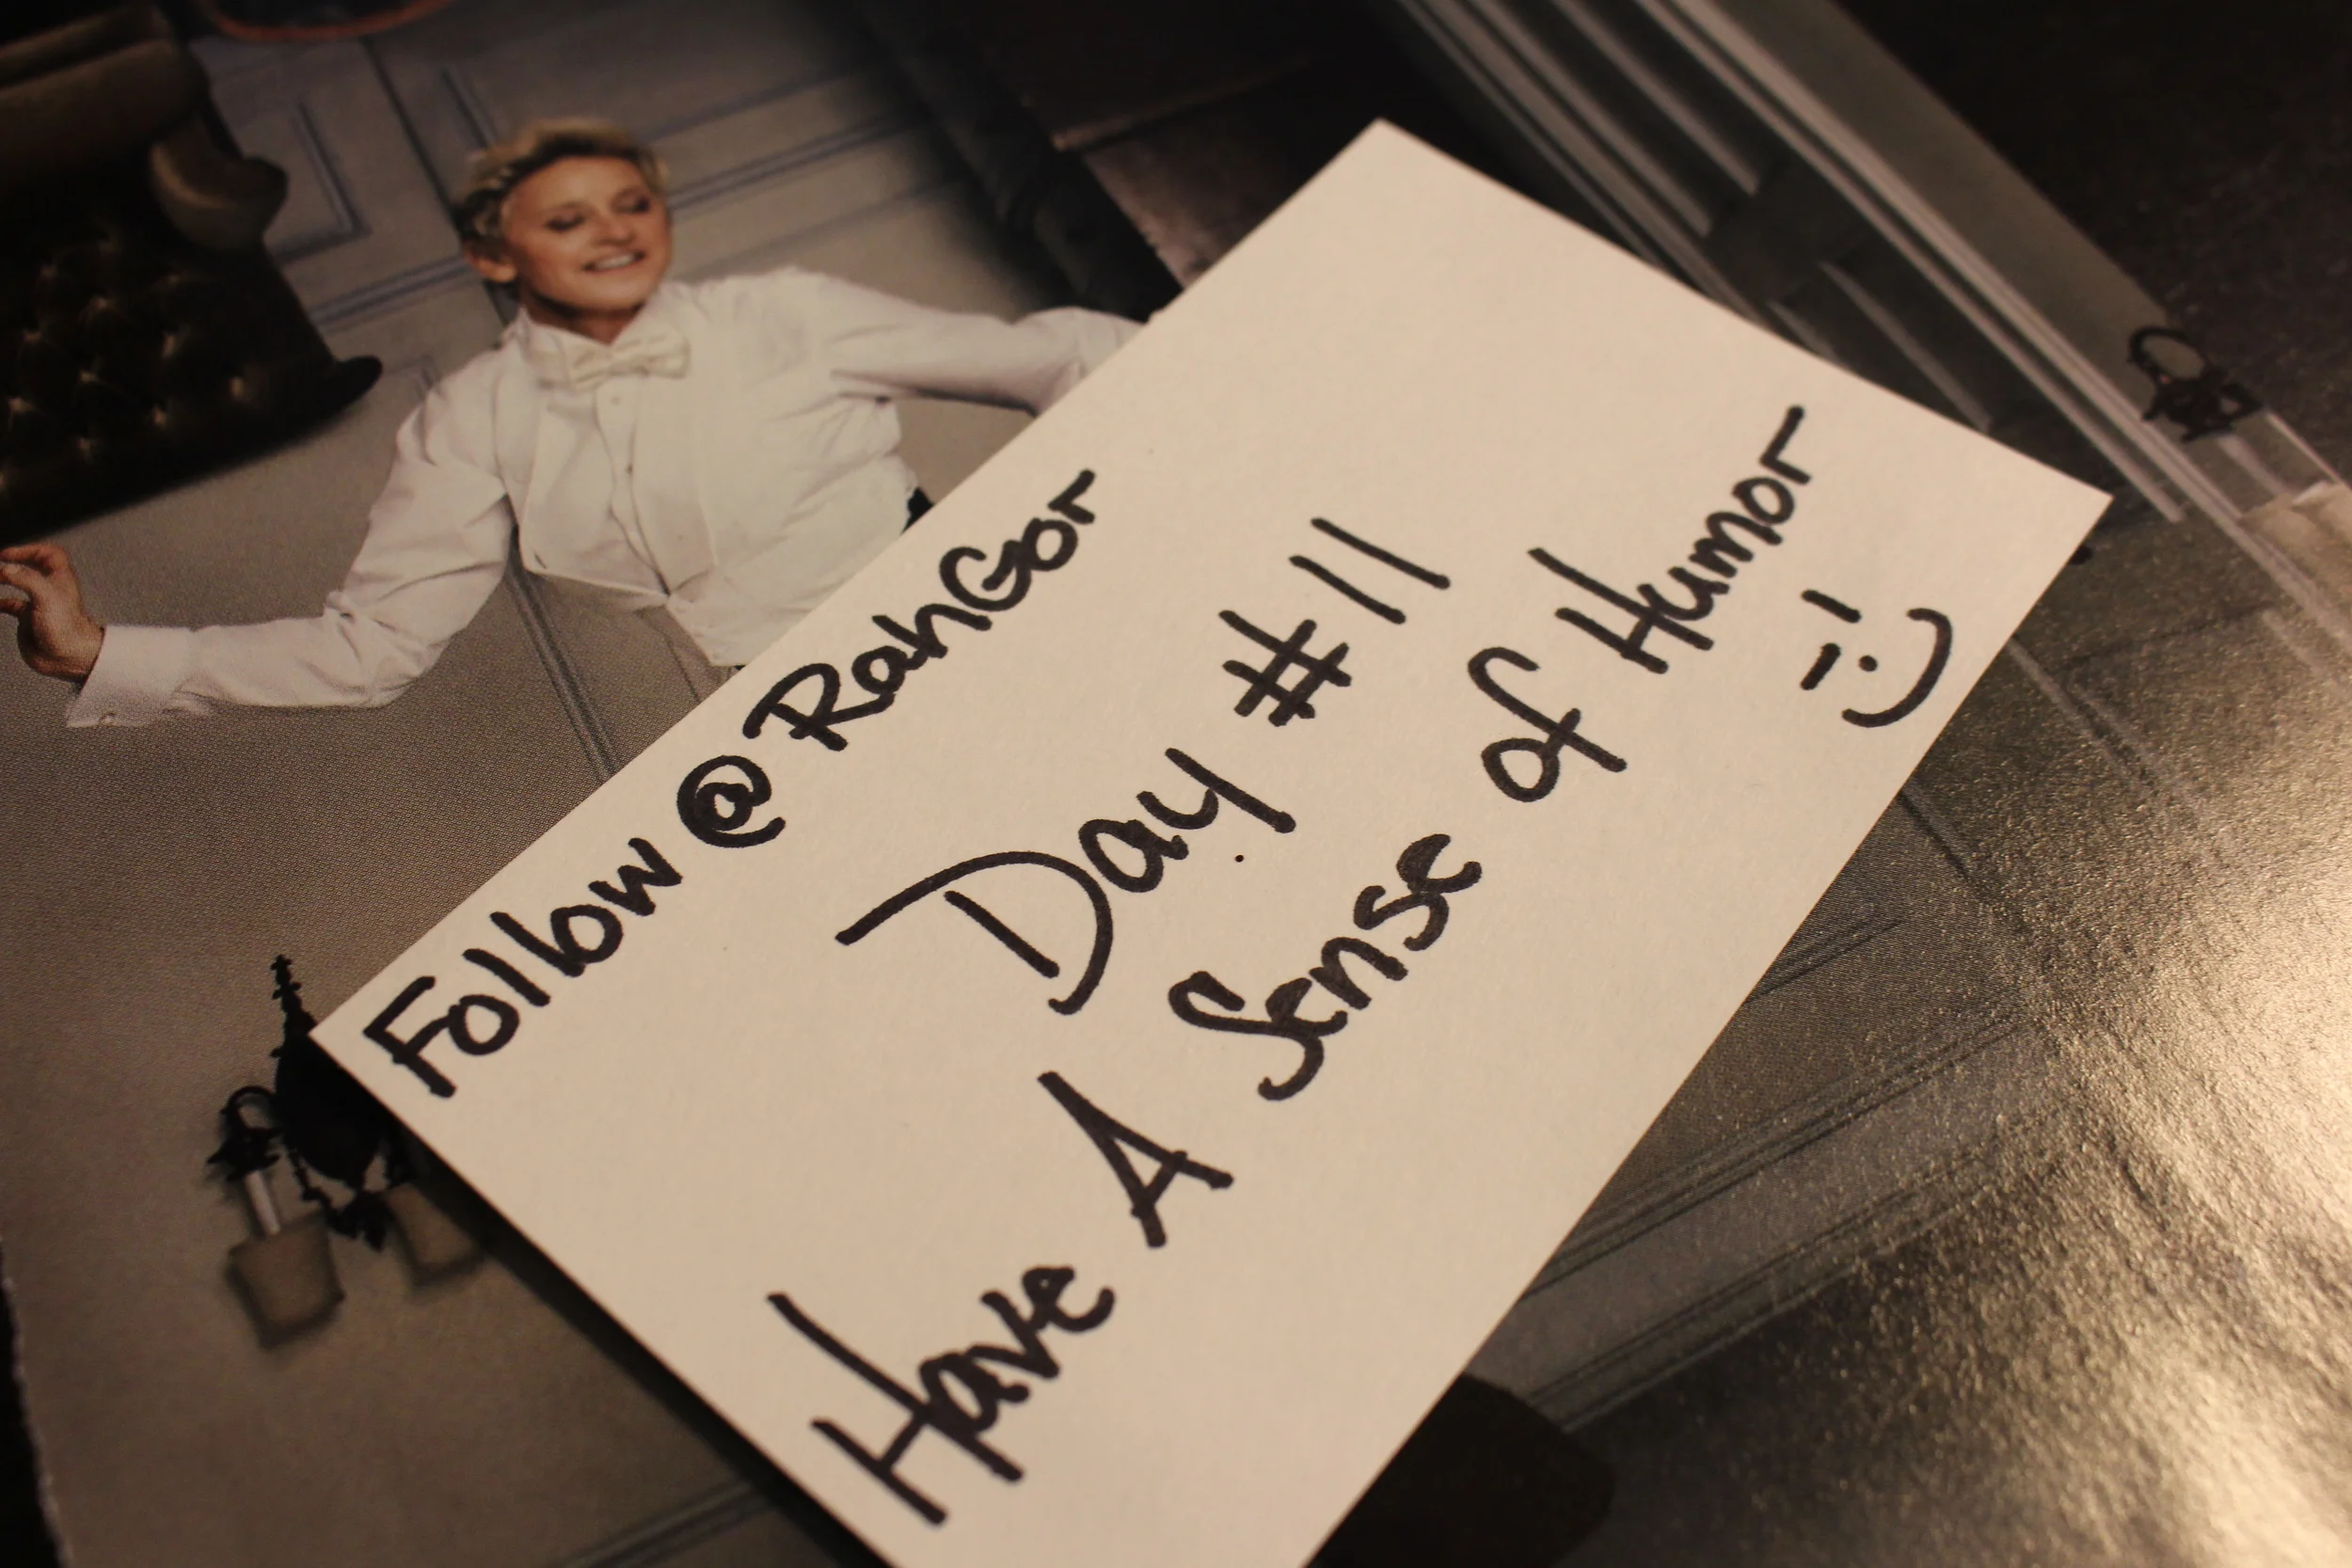 Follow @RahGor
Day #11
Have A Sense of Humor
:)